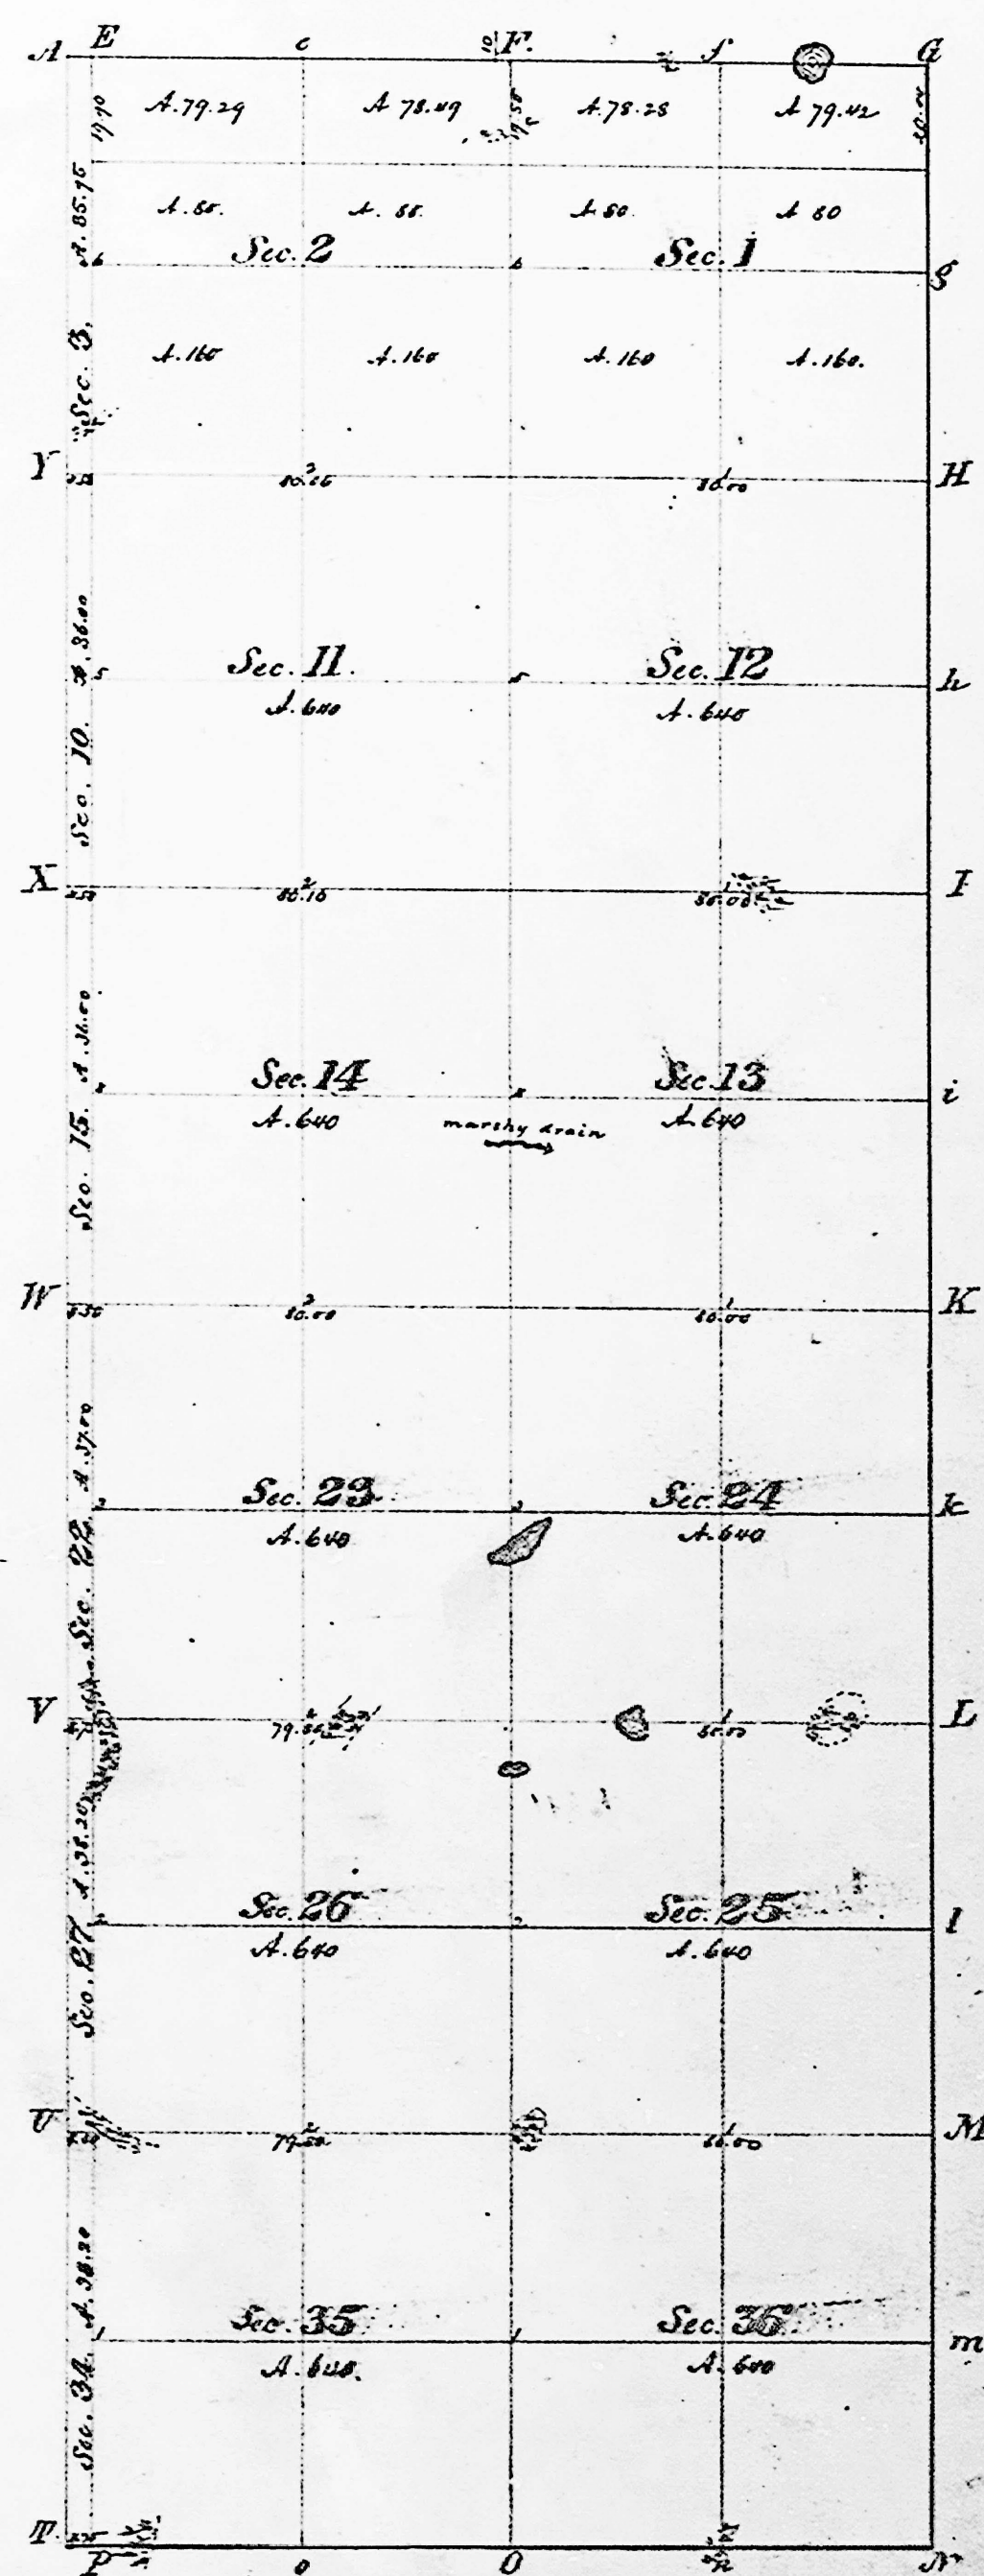 A E c F. f G
19.90 A.79.29 A 78.49 A.78.28 A 79.42
A.80. A. 80. A 80. A 80
A. 35.95
Sec. 2 Sec. 1 g
A.160 A.160 A.160 A.160.
Sec. 3.
Y 80.00 H
A. 36.00
Sec. 11. Sec. 12 h
A.640 A.640
Sec. 10.
X 80.10 80.00 I
A. 36.00
Sec. 14 Sec. 13 i
A.640 marshy drain A.640
Sec. 15.
W 80.00 80.00 K
A. 37.00
Sec. 23 Sec. 24 k
A.640 A.640
Sec. 22.
V L
A. 38.20
Sec. 26 Sec. 25 l
A.640 A.640
Sec. 27
U M
A. 38.20
Sec. 35 Sec. 36. m
A.640. A.640
Sec. 34.
T. P o O n N